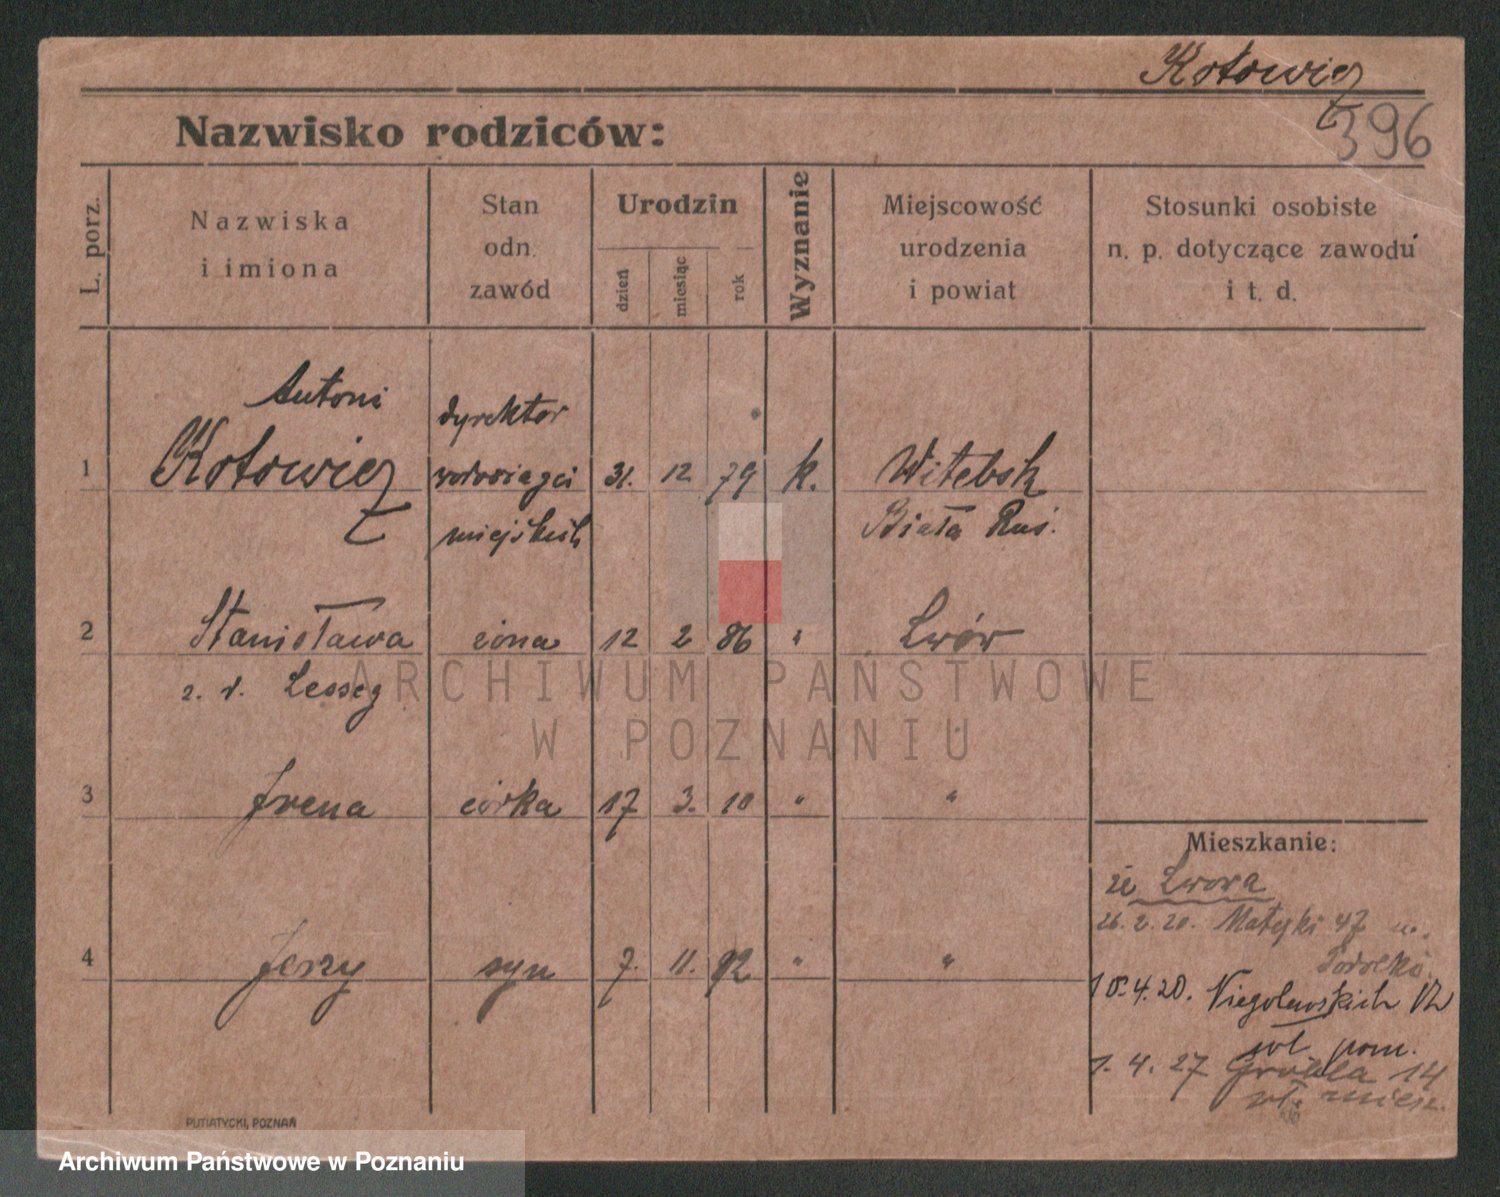 Kotowicz
396
Nazwisko rodziców:
L. porz.
Nazwiska
i imiona
Stan
odn.
zawód
Urodzin
dzień
miesiąc
rok
Wyznanie
Miejscowość
urodzenia
i powiat
Stosunki osobiste
n. p. dotyczące zawodu
i t. d.
Antoni
1 Kotowicz dyrektor wodociągów miejskich 31. 12 79 k. Witebsk
Biała Ruś.
2 Stanisława żona 12 2 86 " Lwów
z. d.
3 Irena córka 17 3. 10 " "
4 Jerzy syn 7. 11. 12 " "
Mieszkanie:
ze Lwowa
26. 2. 20. Matejki 47 u.
10.4.20. Niegolewskich
wł. pom.
1. 4. 27 Grobla 14
wł. miesz.
PUTIATYCKI, POZNAŃ
ARCHIWUM PAŃSTWOWE
W POZNANIU
Archiwum Państwowe w Poznaniu